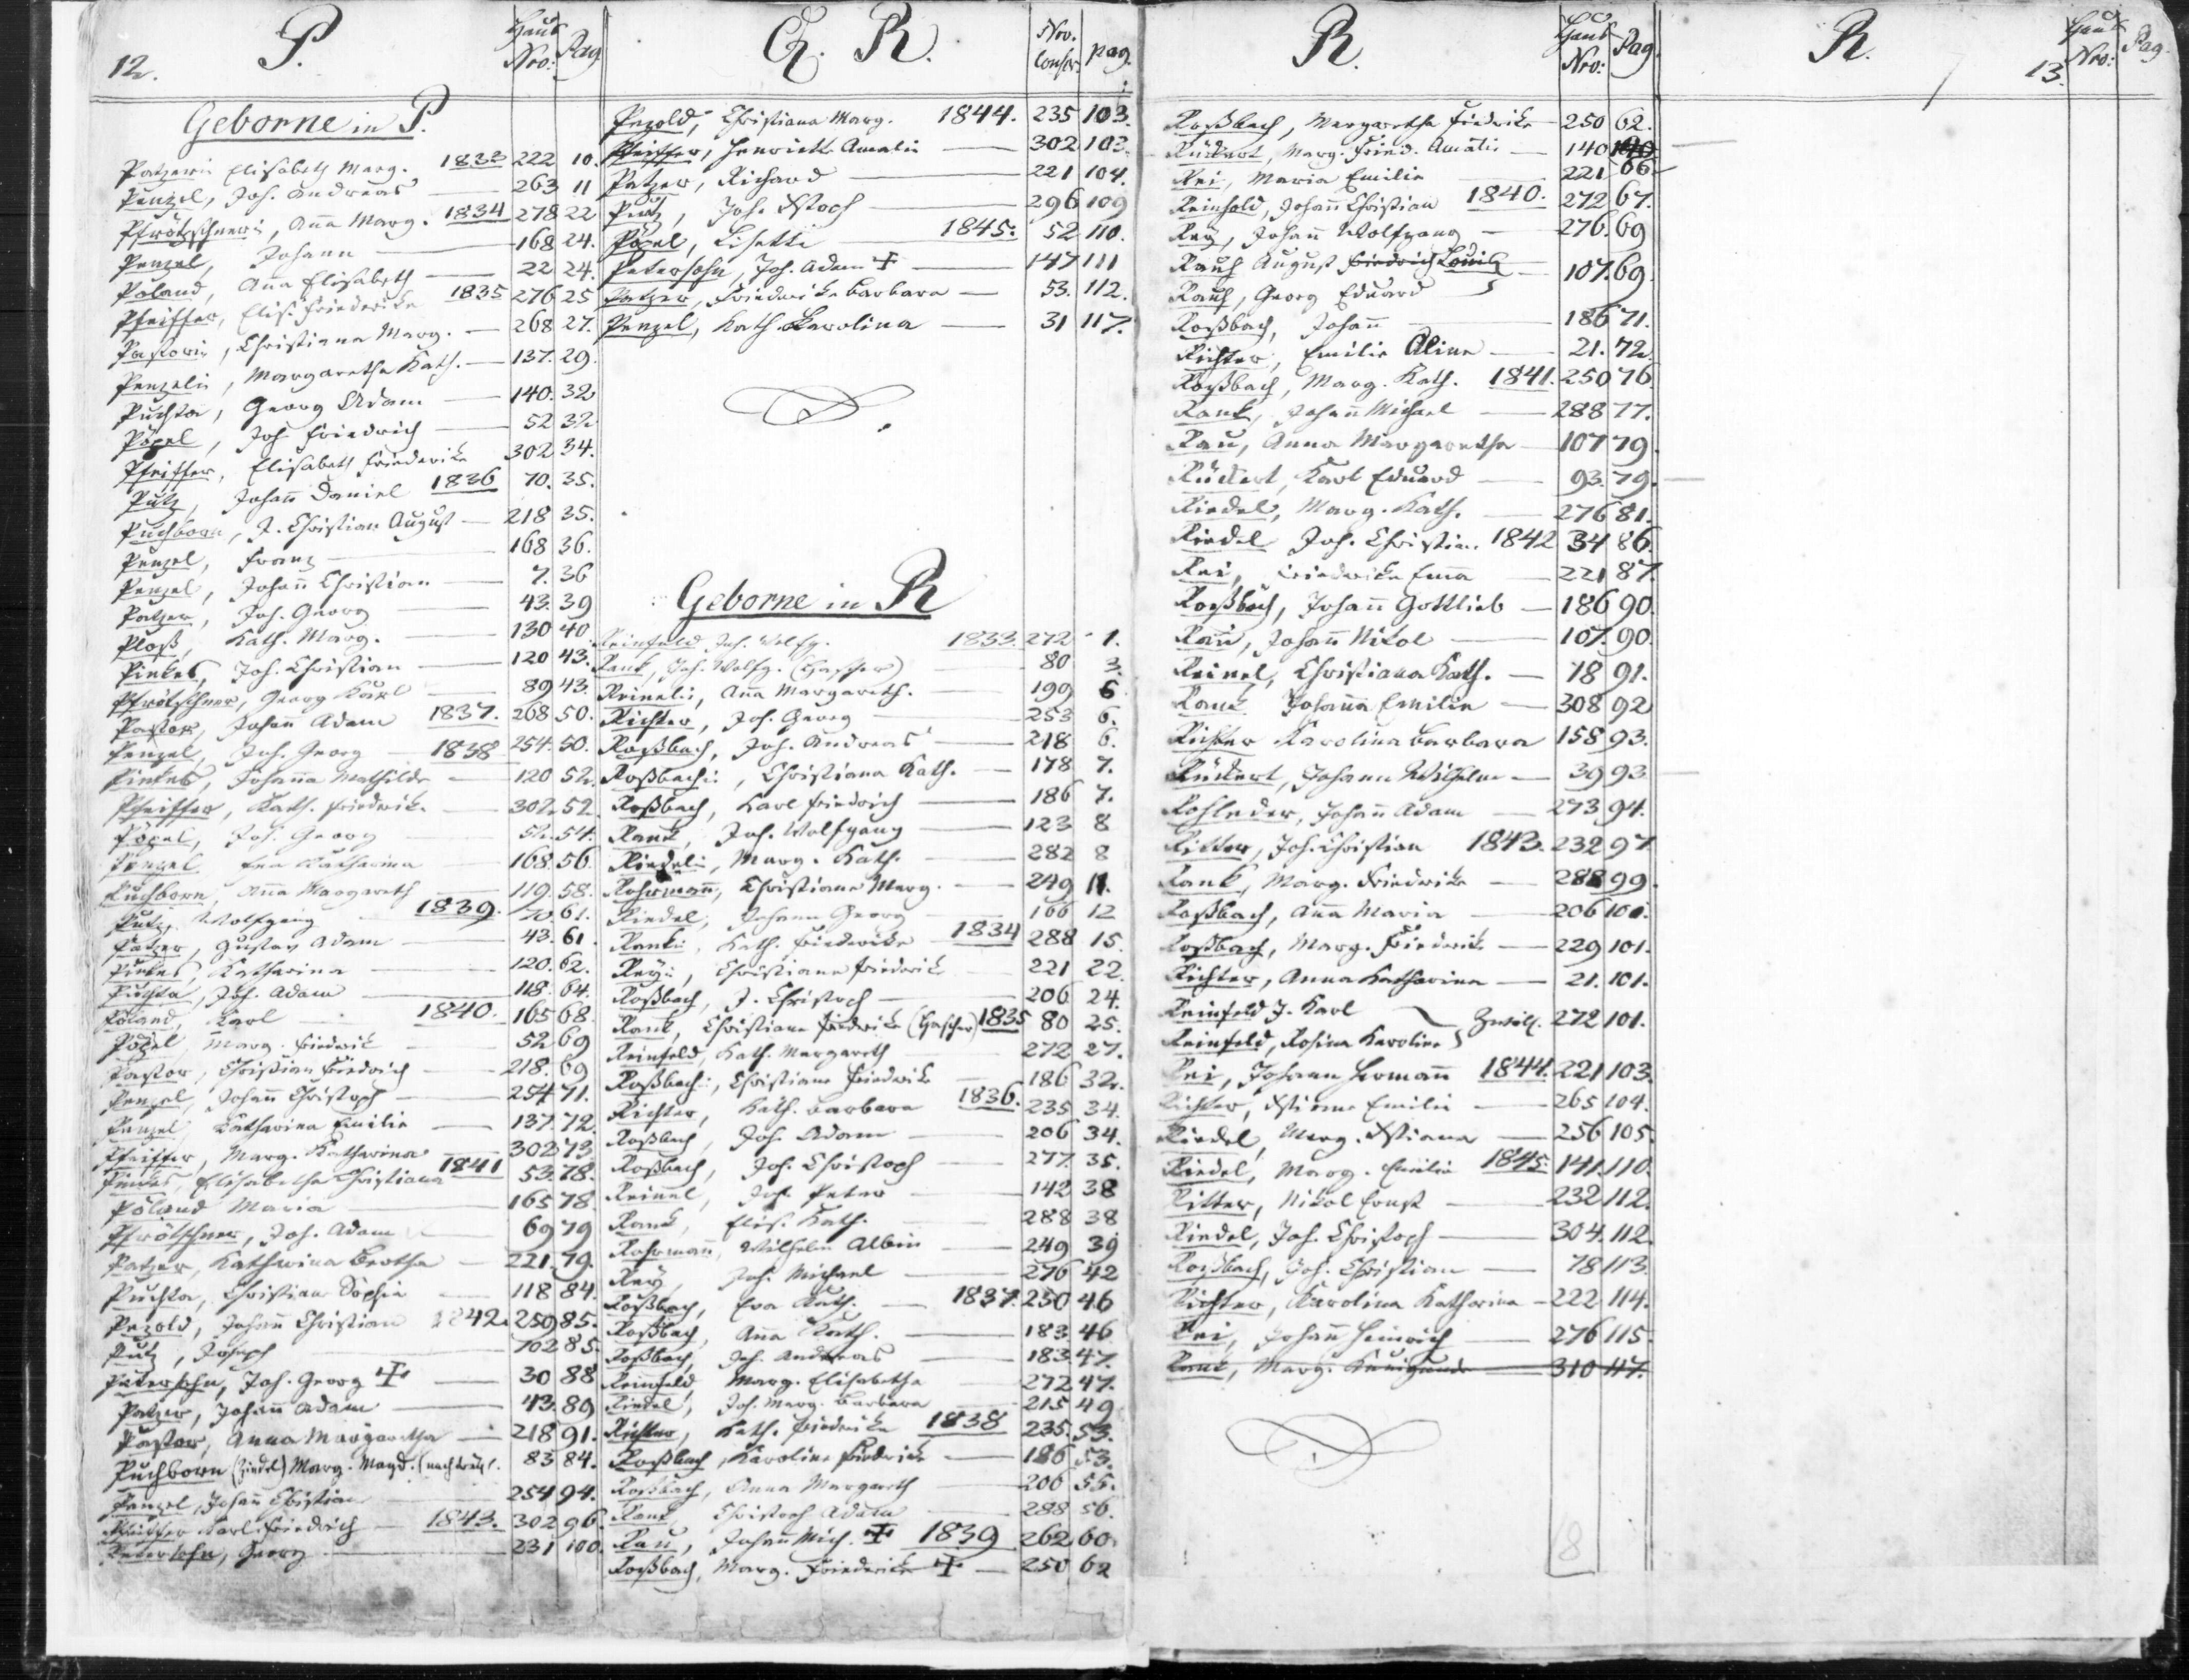 12.
P.
Haus Nro:
Pag
Geborne in P.
Patzerin Elisabeth Marg. 1833 222 10.
Penzel, Joh. Andreas 263 11
Pfrötzschneri, Anna Marg. 1834 278 22
Penzel, Johann 168 24.
Poland, Ana Elisabeth 22 24.
Pfeiffer, Elis. Friedericke 1835 276 25
Pastorin, Christiana Marg. 268 27.
Penzelin, Margaretha Kath. 137. 29.
Puchta, Georg Adam 140. 32
Pöpel, Joh Friedrich 52 32
Pfeiffer, Elisabeth Friederike 302 34.
Putz, Johann Daniel 1836 70. 35.
Puchborn, J. Christian August 218 35.
Penzel, Franz 168 36.
Penzel, Johann Christian 7. 36
Patzer, Joh. Georg 43. 39
Ploß, Kath. Marg. 130 40
Pinkes, Joh. Christian 120 43.
Pfrötschner, Georg Karl 89 43.
Pastor, Johann Adam 1837. 268 50.
Penzel, Joh. Georg 1838 254. 50.
Pinkes, Johanna Mathilde 120 52.
Pfeiffer, Kath. Friederike 302 52.
Pöpel, Joh. Georg 52. 54.
Penzel Eva Katharina 168. 56.
Puchborn, Anna Margareth 119. 58.
Putz, Wolfgang 1839. 70 61.
Patzer, Gustav Adam 43. 61.
Pinkes, Katharina 120. 62.
Puchta, Joh. Adam 118. 64.
Poland, Karl 1840. 165 68.
Pöpel, Marg. Friederik 52 69
Pastor, Christian Friedrich 218. 69
Penzel, Johann Christoph 254 71.
Penzel, Katharina Emilie 137. 72.
Pfeiffer, Marg. Katharina 302 73
Pinkes, Elisabetha Christiana 1841 53. 78.
Poland Maria 165 78.
Pfrötschner, Joh. Adam 69 79
Patzer, Katharina Bertha 221. 79.
Puchta, Christiane Sophie 118 84.
Pezold, Johann Christian 1842. 250 85.
Putz, Joseph 70 85.
Petersohn, Joh. Georg ✝ 30 88
Patzer, Johann Adam 43. 89
Pastor, Anna Margaretha 218 91.
Puchborn (Riedel) Marg. Magd. 83 84.
Penzel, Johann Christian 254 94.
Pfeiffer Karl Friedrich 1843. 302 96.
Petersohn, Georg 231 100.
Q. R.
Nro. Conscr.
pag.
Pezold, Christiana Marg. 1844. 235 103.
Pfeiffer, Henriette Amalie 302 103.
Patzer, Richard 221 104.
Putz, Joh. Xstoph 296 109
Pöpel, Lisette 1845: 52 110.
Petersohn, Joh. Adam ✝ 147 111
Patzer, Friederike Barbara 53. 112.
Penzel, Kath. Karolina 31 117.
Geborne in R
Reinfeld Joh. Wolfg. 1833. 272 1.
Rank, Joh. Wolfg. 80 3.
Reinelin, Anna Margareth. 199 6
Richter, Joh. Georg 253 6.
Roßbach, Joh. Andreas 218 6.
Roßbachin, Christiana Kath. 178 7.
Roßbach, Karl Friedrich 186 7.
Rank, Joh. Wolfgang 123 8
Riedelin, Marg. Kath. 282 8
Rohrmann, Christiana Marg. 249 11.
Riedel, Johann Georg 166 12
Rankin Kath. Friederike 1834 288 15.
Reyin, Christiana Friederik 221 22.
Roßbach, J. Christoph 206 24.
Rank, Christiane Friederike 1835 80 25.
Reinfeld, Kath. Margareth 272 27.
Roßbachin, Christiane Friederike 186 32.
Richter, Kath. Barbara 1836. 235 34.
Roßbach, Joh. Adam 206 34.
Roßbach, Joh. Christoph 277. 35.
Reinel, Joh. Peter 142 38
Rank, Elis. Kath. 288 38
Rohrmann, Wilhelm Albin 249 39
Rey, Joh. Michael 276 42
Roßbach, Eva Kath. 1837. 250 46
Roßbach, Anna Kath. 183. 46
Roßbach, Joh. Andreas 183. 47.
Reinfeld Marg. Elisabetha 272 47.
Riedel, Joh. Marg. Barbara 215 49
Richter, Kath. Friederike 1838 235. 53.
Roßbach, Karoline Friederike 186 53.
Roßbach, Anna Margareth 206 55.
Rank, Christoph Adam 288 56.
Rau, Johann Mich. ✝ 1839 262 60.
Roßbach, Marg. Friederike ✝ 250 62
R.
Haus Nro:
Pag
Roßbach, Margaretha Friederike 250 62.
Rückert, Marg. Fried. Amalie 140
Rei, Maria Emilie 221 66.
Reinhold, Johann Christian 1840. 272 67.
Rey, Johann Wolfgang 276. 69
Rauh August Friedrich Louis
Rauh, Georg Eduard 107. 69.
Roßbach, Johann 186 71.
Richter, Emilie Aline 21. 72.
Roßbach, Marg. Kath. 1841. 250 76.
Rank, Johann Michael 288 77.
Rau, Anna Margaretha 107 79.
Rückert, Karl Eduard 93. 79.
Riedel, Marg. Kath. 276 81.
Riedel Joh. Christian. 1842 34 86.
Rei, Friederike Emma 221 87.
Roßbach, Johann Gottlieb 186 90.
Rau, Johann Nikol 107. 90.
Reinel, Christiana Kath. 78 91.
Rank Johanna Emilie 308 92
Richter Karolina Barbara 158 93.
Rückert, Johann Wilhelm 39 93
Rohleder, Johann Adam 273 94.
Ritter, Joh. Christian 1843. 232 97
Rank, Marg. Friederike 288 99.
Roßbach, Anna Maria 206 101.
Roßbach, Marg. Friederik 229 101.
Richter, Anna Katharina 21. 101.
Reinfeld J. Karl
Reinfeld, Rosina Karoline } Zwill. 272 101.
Rei, Johann Hermann 1844. 221 103.
Richter, Xstiana Emilie 265 104.
Riedel, Marg. Xstiana 256 105.
Riedel, Marg. Emilie 1845: 141. 110.
Ritter, Nikol Ernst 232 112.
Riedel, Joh. Christoph 304. 112.
Roßbach, Joh. Christian 78 113.
Richter, Karolina Katharina 222 114.
Rei, Johann Heinrich 276 115.
Rank, Marg. Kunigunde 310 117.
8
R.
13.
Haus Nro:
Pag.